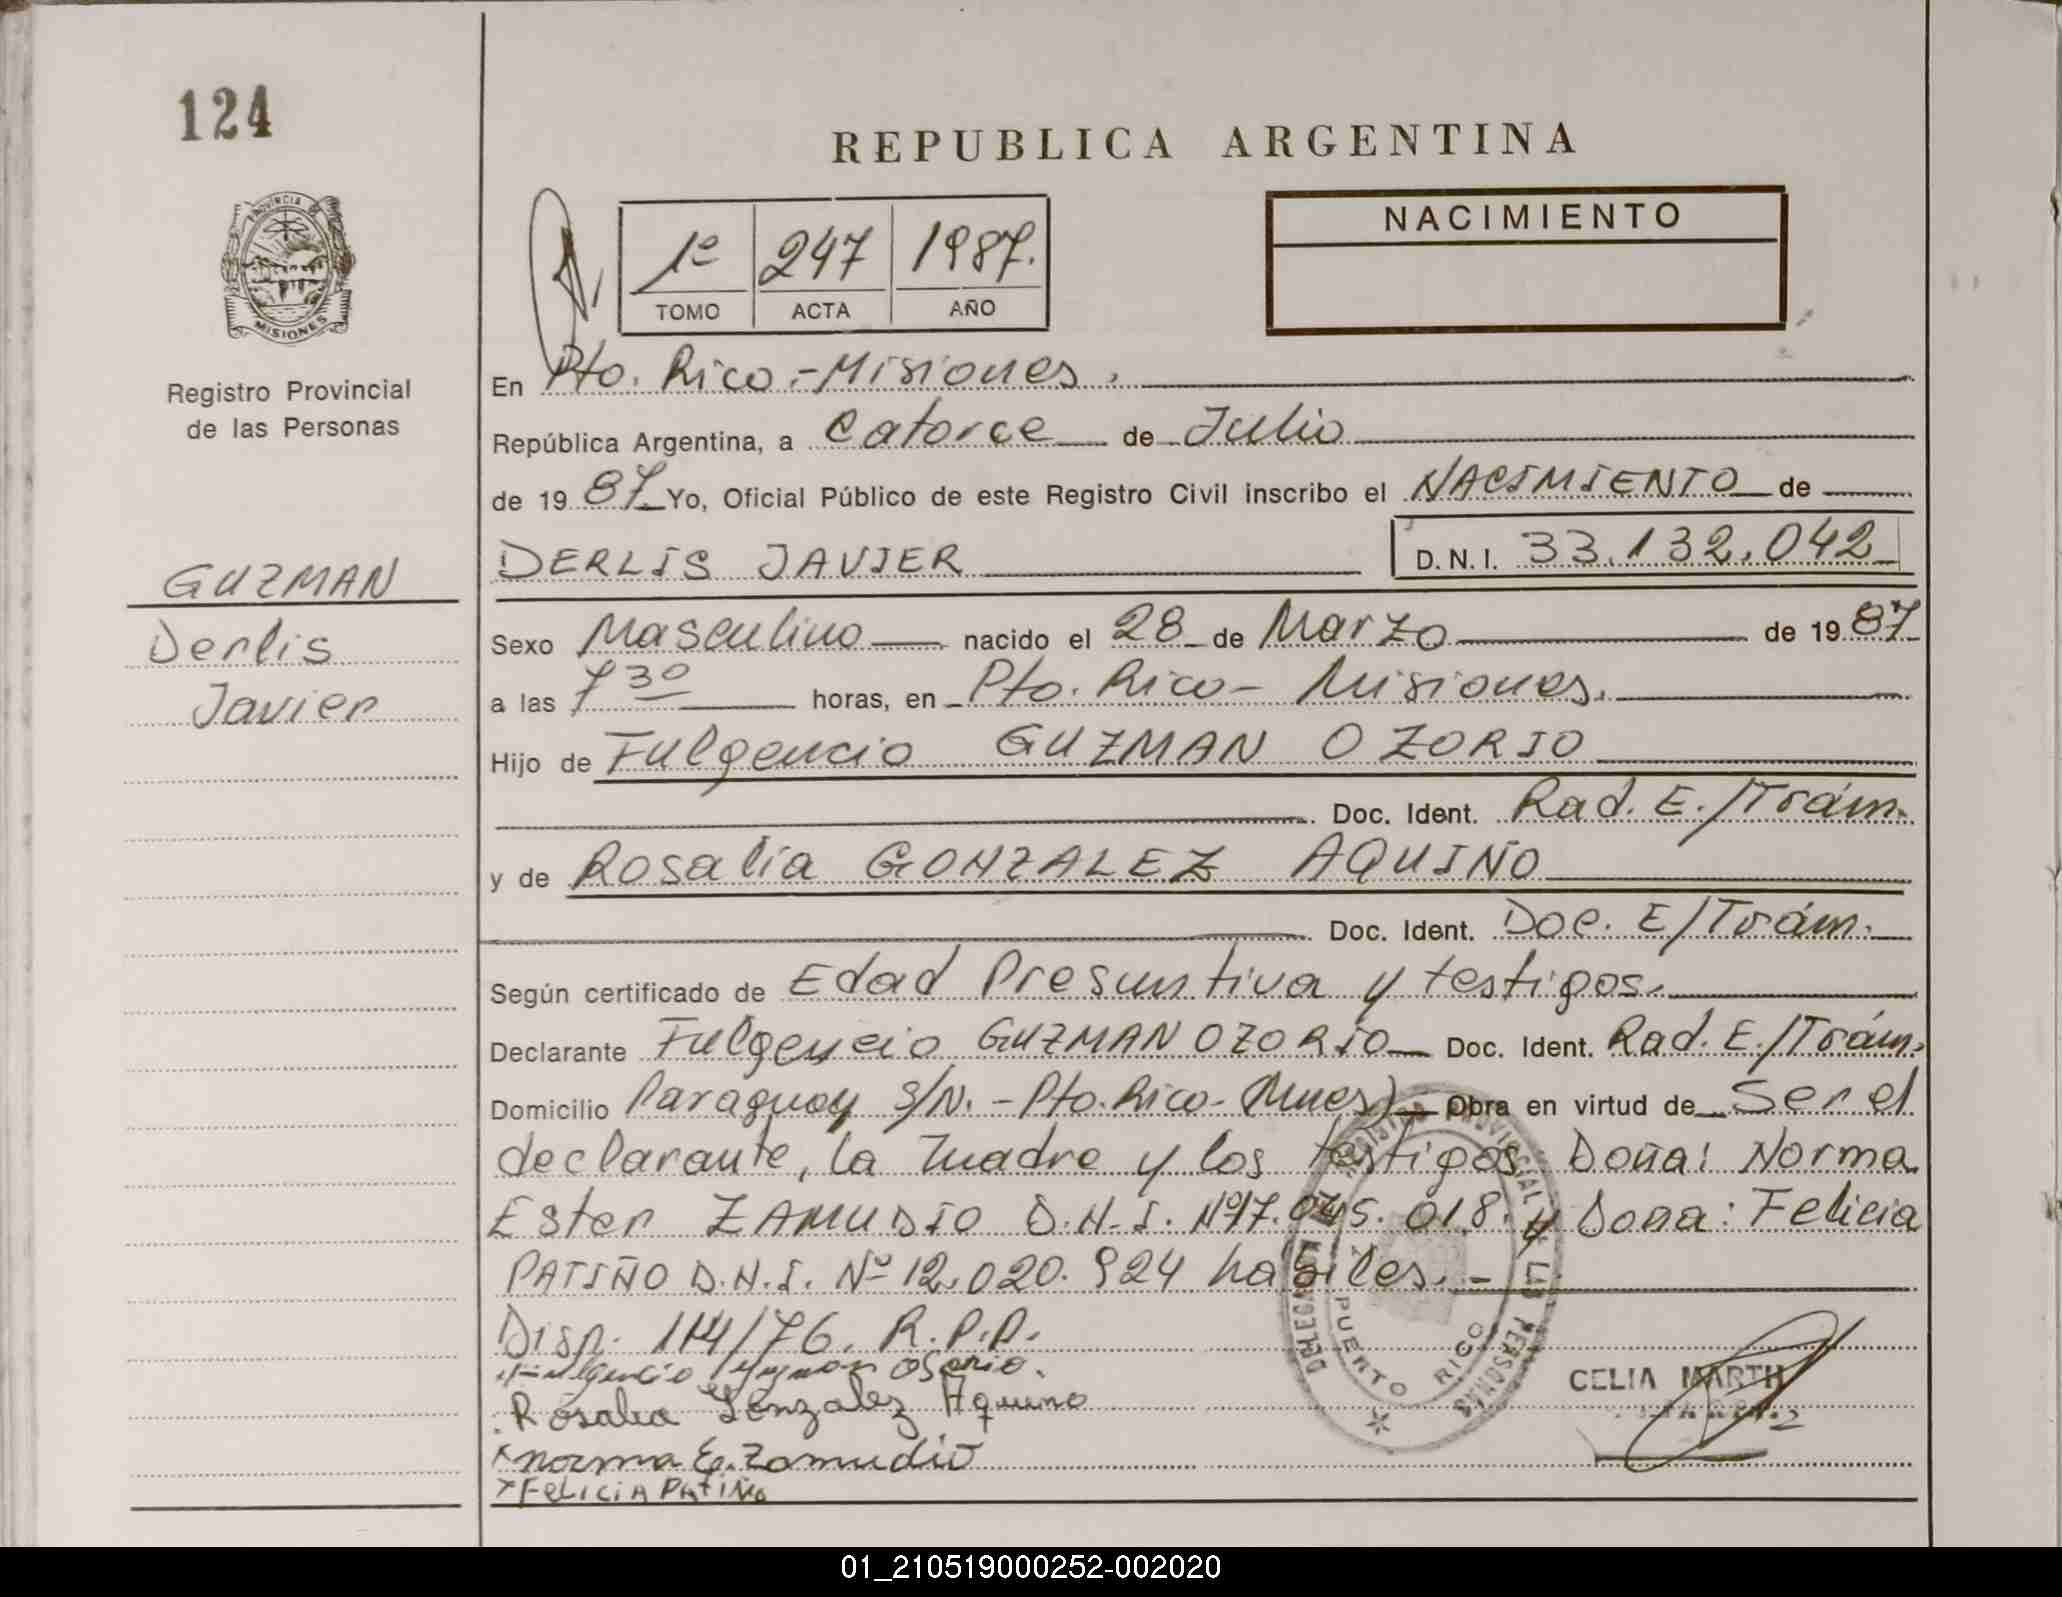 124
REPUBLICA ARGENTINA
PROVINCIA DE
MISIONES
1º 247 1987.
TOMO ACTA AÑO
NACIMIENTO
Registro Provincial
de las Personas
GUZMAN
Derlis
Javier
En Pto. Rico.-Misiones.
República Argentina, a Catorce de Julio
de 1987 Yo, Oficial Público de este Registro Civil inscribo el NACIMIENTO de
DERLIS JAVIER D.N.I. 33.132.042
Sexo Masculino nacido el 28 de Marzo de 1987
a las 7 30 horas, en Pto. Rico- Misiones.
Hijo de Fulgencio GUZMAN OZORIO
Doc. Ident. Rad. E./Trám.
y de Rosalia GONZALEZ AQUINO
Doc. Ident. Doc. E/Trám.
Según certificado de Edad Presuntiva y testigos.
Declarante Fulgencio GUZMAN OZORIO Doc. Ident. Rad. E./Trám.
Domicilio Paraguay S/N.-Pto.Rico-(Mnes) Obra en virtud de Ser el
declarante, la madre y los testigos Doña: Norma
Ester ZAMUDIO D.N.I. Nº17.045.018. y Doña: Felicia
PATIÑO D.N.I. Nº 12.020.924 habiles.-
Disp. 114/76. R.P.P.
Fulgencio Guzman Osorio.
Rosalia Gonzalez Aquino
Norma E. Zamudio
FELICIA PATIÑO
REGISTRO PROVINCIAL DE LAS PERSONAS
PUERTO RICO
CELIA MARTH
01_210519000252-002020